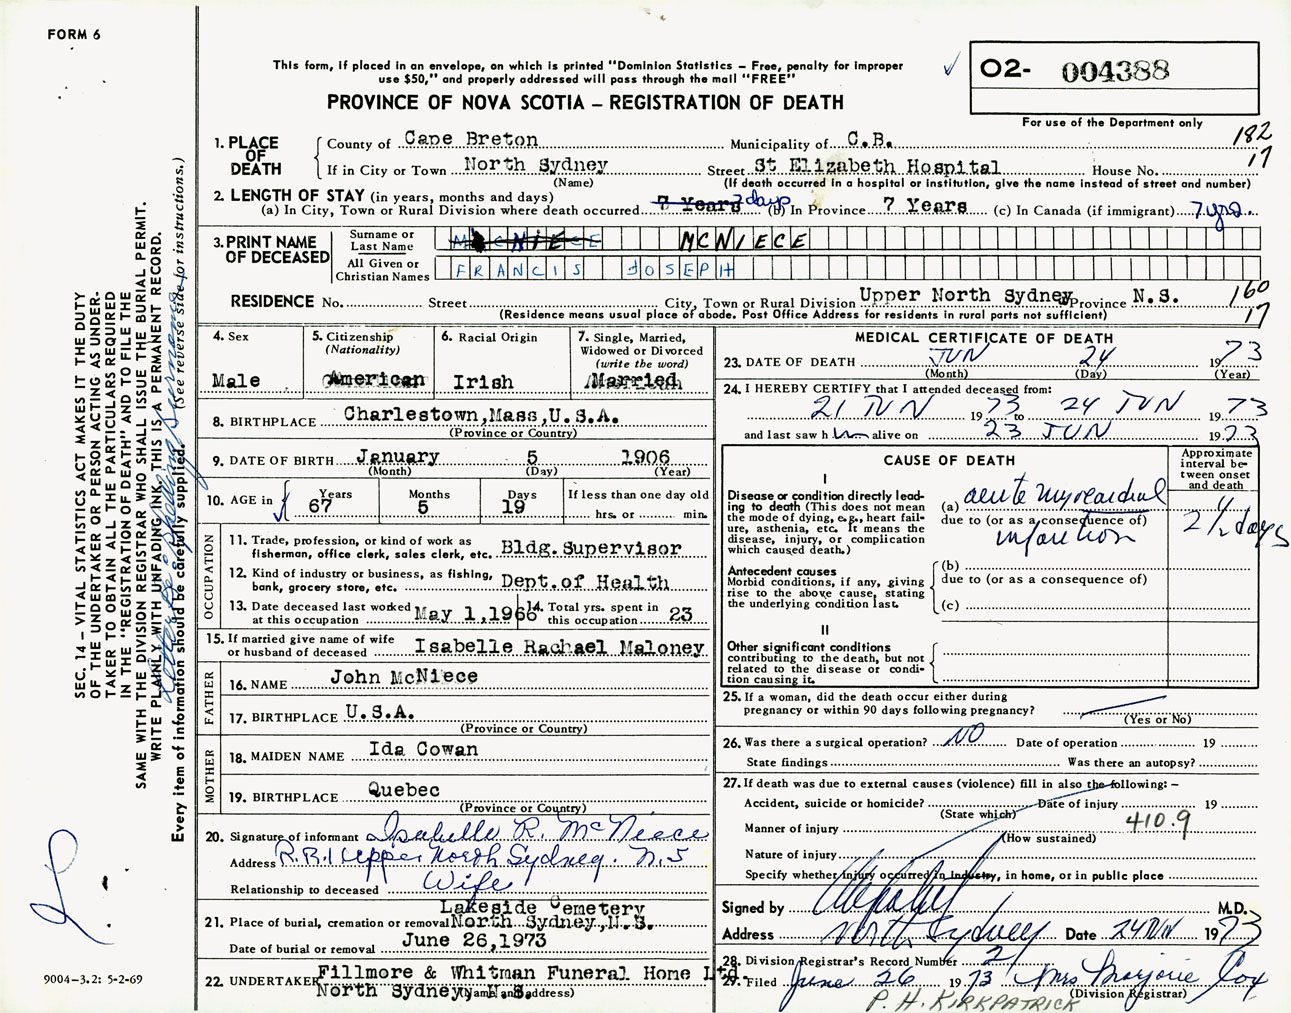 FORM 6
This form, if placed in an envelope, on which is printed "Dominion Statistics – Free, penalty for improper
use $50," and properly addressed will pass through the mail "FREE"
PROVINCE OF NOVA SCOTIA – REGISTRATION OF DEATH
✓ 02- 004388
For use of the Department only
182
17
1. PLACE OF DEATH
County of Cape Breton Municipality of C.B.
If in City or Town North Sydney Street St Elizabeth Hospital House No.
(Name) (If death occurred in a hospital or institution, give the name instead of street and number)
2. LENGTH OF STAY (in years, months and days)
(a) In City, Town or Rural Division where death occurred 7 Years 3 days (b) In Province 7 Years (c) In Canada (if immigrant) 7 yrs.
3. PRINT NAME OF DECEASED
Surname or Last Name MCNIECE MCNIECE
All Given or Christian Names FRANCIS JOSEPH
RESIDENCE No. Street City, Town or Rural Division Upper North Sydney Province N.S.
(Residence means usual place of abode. Post Office Address for residents in rural parts not sufficient)
160
17
4. Sex
Male
5. Citizenship
(Nationality)
American
6. Racial Origin
Irish
7. Single, Married,
Widowed or Divorced
(write the word)
Married
8. BIRTHPLACE Charlestown,Mass,U.S.A.
(Province or Country)
9. DATE OF BIRTH January 5 1906
(Month) (Day) (Year)
10. AGE in Years 67 Months 5 Days 19 If less than one day old
hrs. or min.
OCCUPATION
11. Trade, profession, or kind of work as
fisherman, office clerk, sales clerk, etc. Bldg.Supervisor
12. Kind of industry or business, as fishing,
bank, grocery store, etc. Dept.of Health
13. Date deceased last worked
at this occupation May 1,1966
14. Total yrs. spent in
this occupation 23
15. If married give name of wife
or husband of deceased Isabelle Rachael Maloney
FATHER
16. NAME John McNiece
17. BIRTHPLACE U.S.A.
(Province or Country)
MOTHER
18. MAIDEN NAME Ida Cowan
19. BIRTHPLACE Quebec
(Province or Country)
20. Signature of informant Isabelle R. McNiece
Address R.R.1 Upper North Sydney. N.S
Relationship to deceased Wife
21. Place of burial, cremation or removal Lakeside Cemetery
North Sydney,N.S.
Date of burial or removal June 26,1973
22. UNDERTAKER Fillmore & Whitman Funeral Home Ltd.
North Sydney, N.S.
(Name and address)
MEDICAL CERTIFICATE OF DEATH
23. DATE OF DEATH JUN 24 1973
(Month) (Day) (Year)
24. I HEREBY CERTIFY that I attended deceased from:
21 JUN 1973 to 24 JUN 1973
and last saw him alive on 23 JUN 1973
CAUSE OF DEATH
Approximate
interval be-
tween onset
and death
I
Disease or condition directly lead-
ing to death (This does not mean
the mode of dying, e.g., heart fail-
ure, asthenia, etc. It means the
disease, injury, or complication
which caused death.)
(a) acute myocardial
due to (or as a consequence of)
infarction
2 1/2 days
Antecedent causes
Morbid conditions, if any, giving
rise to the above cause, stating
the underlying condition last.
(b)
due to (or as a consequence of)
(c)
II
Other significant conditions
contributing to the death, but not
related to the disease or condi-
tion causing it.
25. If a woman, did the death occur either during
pregnancy or within 90 days following pregnancy?
(Yes or No)
26. Was there a surgical operation? NO Date of operation 19
State findings Was there an autopsy?
27. If death was due to external causes (violence) fill in also the following: –
Accident, suicide or homicide? Date of injury 19
(State which)
Manner of injury 410.9
(How sustained)
Nature of injury
Specify whether injury occurred in industry, in home, or in public place
Signed by M.D.
Address North Sydney Date 24 JUN 1973
28. Division Registrar's Record Number 2
29. Filed June 26 1973 Mrs Marjorie Cox
(Division Registrar)
P. H. KIRKPATRICK
SEC. 14 – VITAL STATISTICS ACT MAKES IT THE DUTY
OF THE UNDERTAKER OR PERSON ACTING AS UNDER-
TAKER TO OBTAIN ALL THE PARTICULARS REQUIRED
IN THE "REGISTRATION OF DEATH" AND TO FILE THE
SAME WITH THE DIVISION REGISTRAR WHO SHALL ISSUE THE BURIAL PERMIT.
WRITE PLAINLY WITH UNFADING INK, THIS IS A PERMANENT RECORD.
Every item of information should be carefully supplied. (See reverse side for instructions.)
9004–3.2: 5-2-69